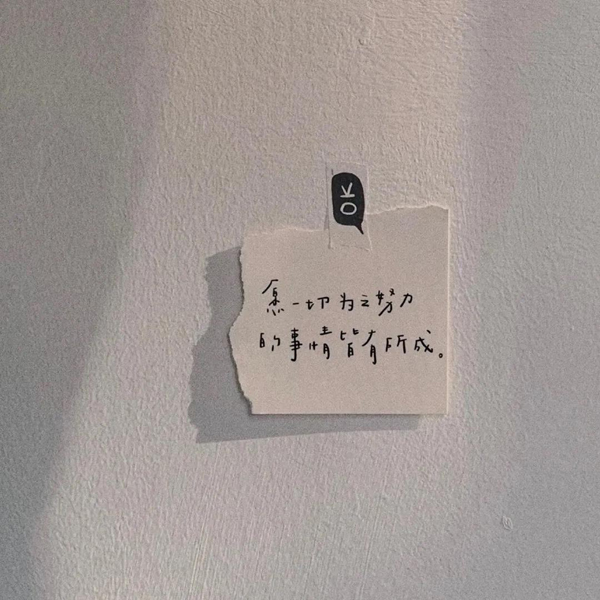 OK
愿一切为之努力
的事情皆有所成。